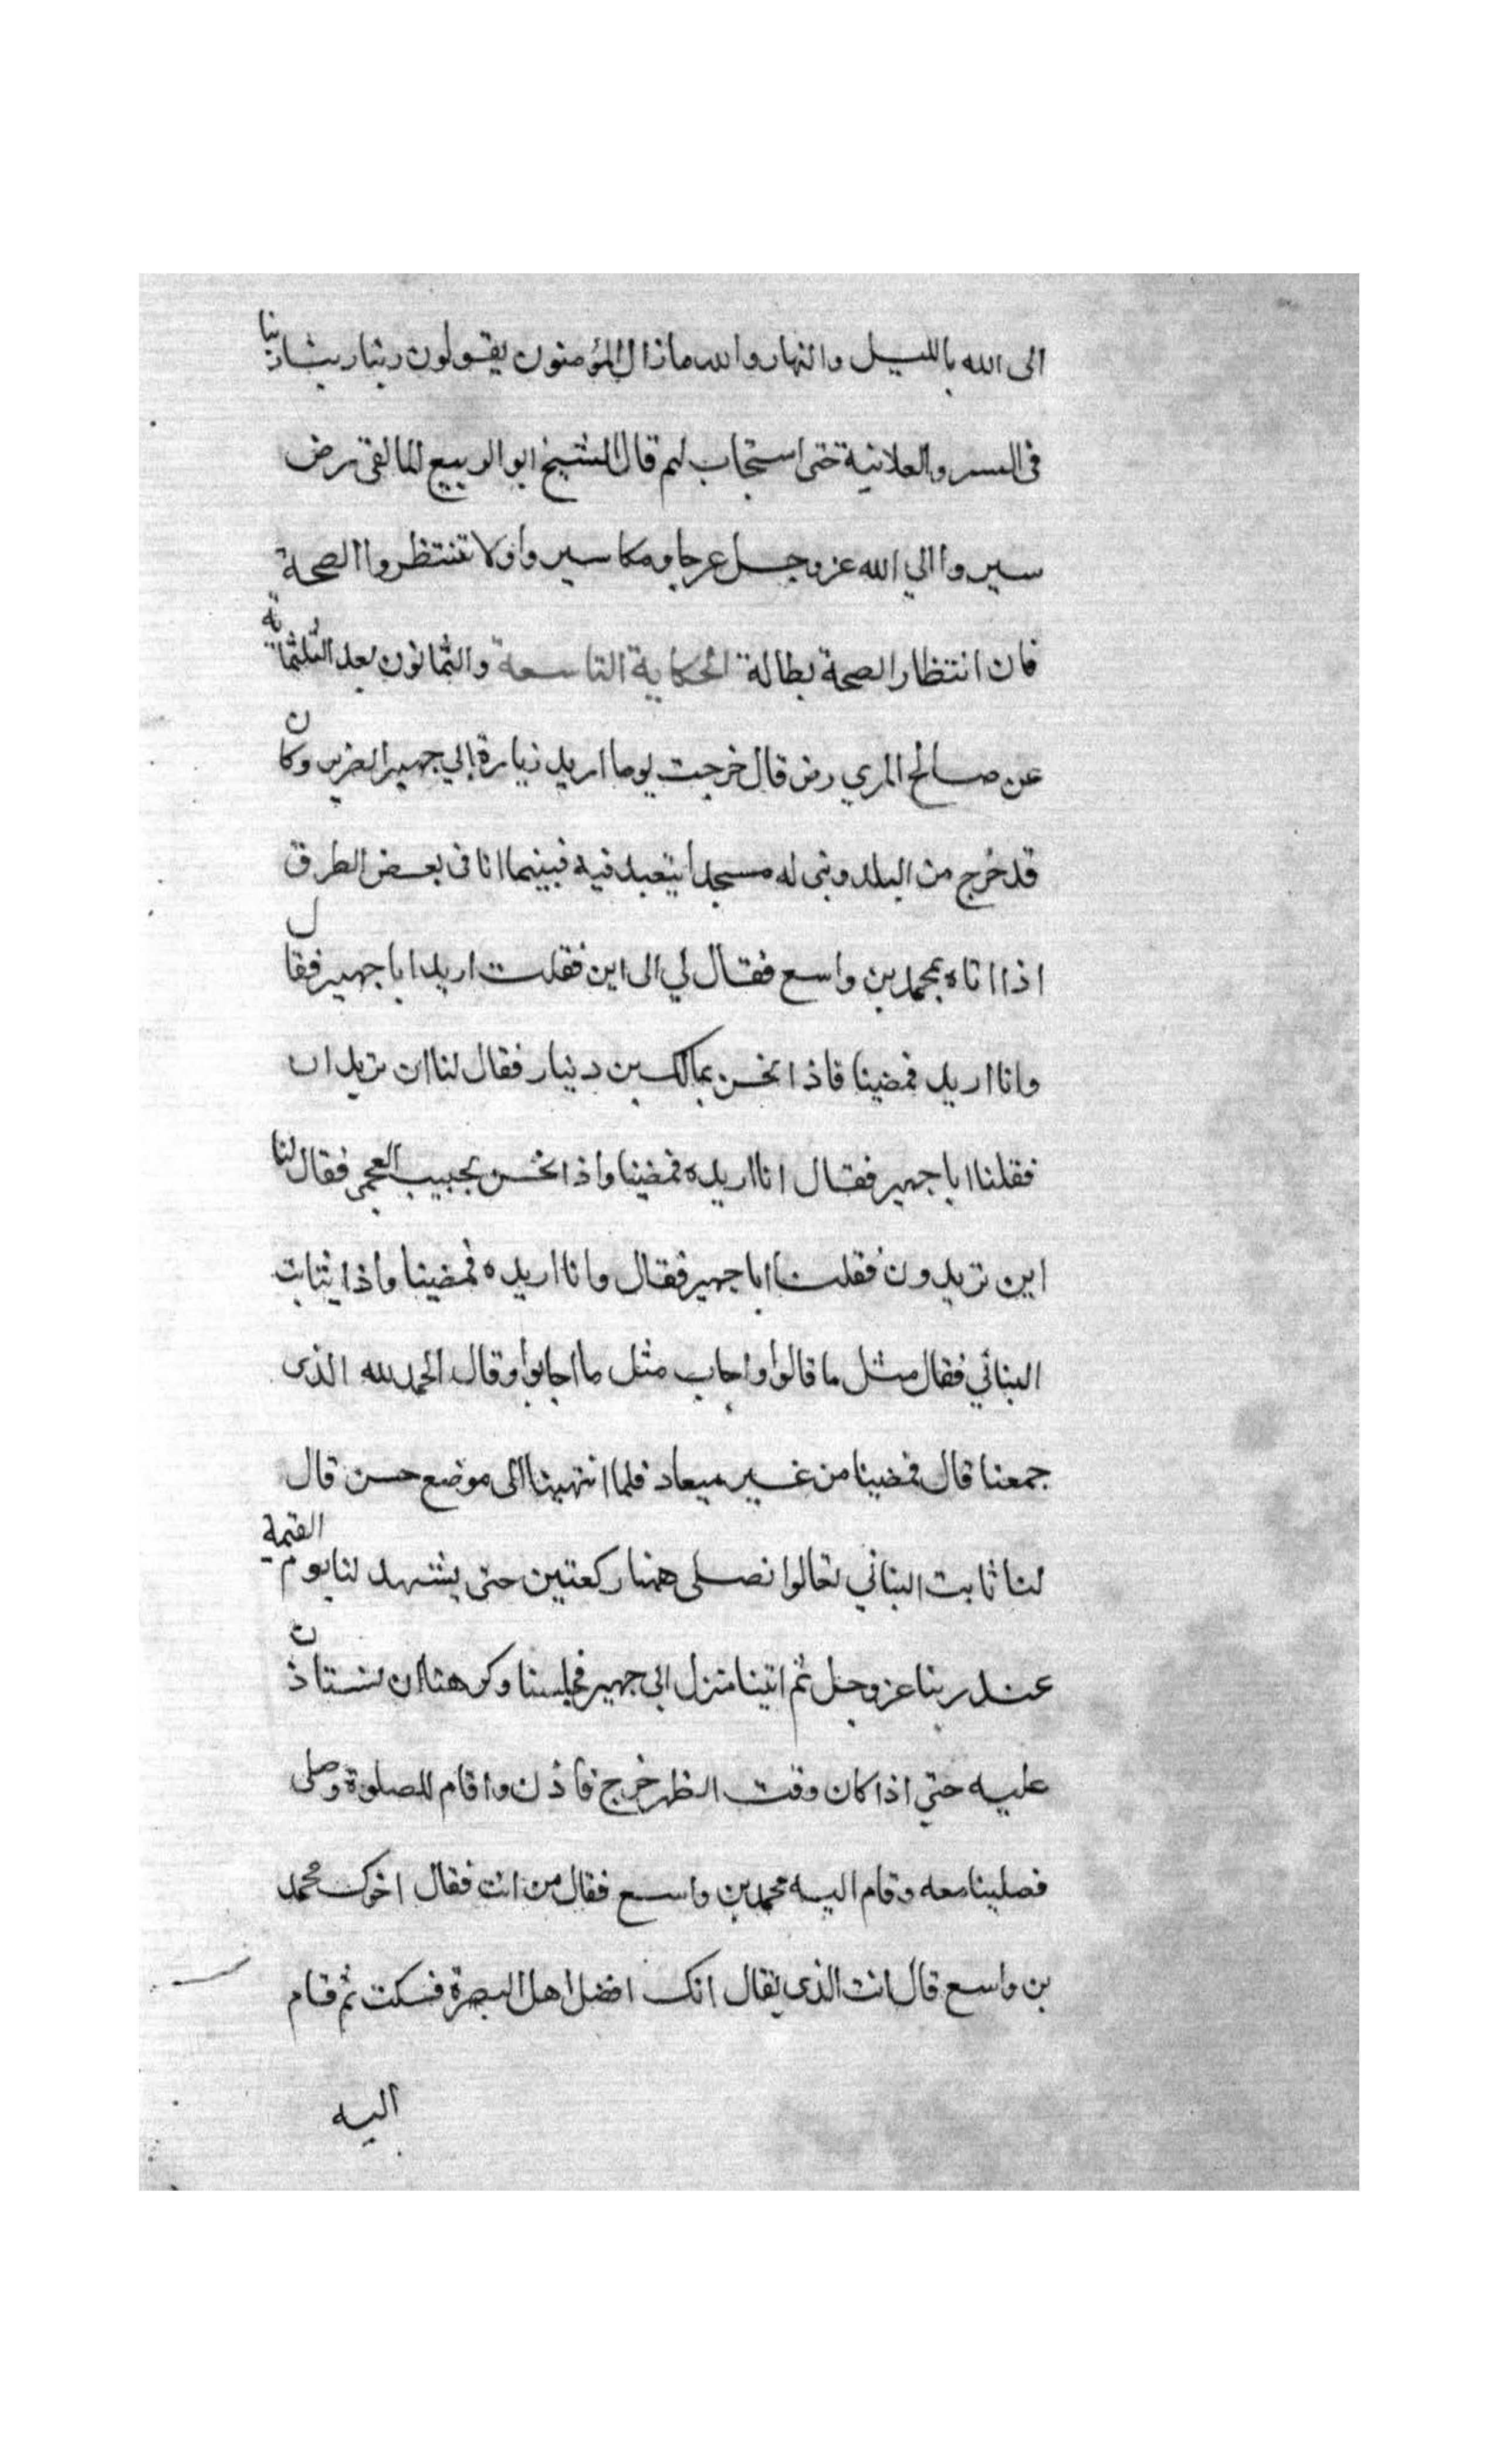 الى الله بالليل والنهار والله مازال المؤمنون يقولون ربنا ربنا ربنا
فى السر والعلانية حتى استجاب لهم قال الشيخ ابو الربيع المالقى رض
سيروا الي الله عز وجل عرجا ومكاسير ولا تنتظروا الصحة
فان انتظار الصحة بطالة الحكاية التاسعة والثمانون بعد الثلثمائة
عن صالح المري رض قال خرجت يوما اريد زيارة ابي جهير الضرير وكان
قد خرج من البلد وبنى له مسجدا يتعبد فيه فبينما انا فى بعض الطرق
اذا انا بمحمد بن واسع فقال لي الى اين فقلت اريد ابا جهير فقال
وانا اريد فمضينا فاذا نحن بمالك بن دينار فقال لنا اين تريدان
فقلنا ابا جهير فقال انا اريده فمضينا واذا نحن بحبيب العجمى فقال لنا
اين تريدون فقلنا ابا جهير فقال وانا اريده فمضينا واذا بثابت
البناني فقال مثل ما قالوا واجاب مثل ما اجابوا وقال الحمد لله الذى
جمعنا قال فمضينا من غير ميعاد فلما انتهينا الى موضع حسن قال
لنا ثابت البناني تعالوا نصلى ههنا ركعتين حتى يشهد لنا يوم القيمة
عند ربنا عز وجل ثم اتينا منزل ابي جهير فجلسنا وكرهنا ان نستاذن
عليه حتي اذا كان وقت الظهر خرج فاذن واقام للصلوة وصلى
فصلينا معه وقام اليه محمد بن واسع فقال من انت فقال اخوك محمد
بن واسع قال انت الذى يقال انك افضل اهل البصرة فسكت ثم قام
اليه